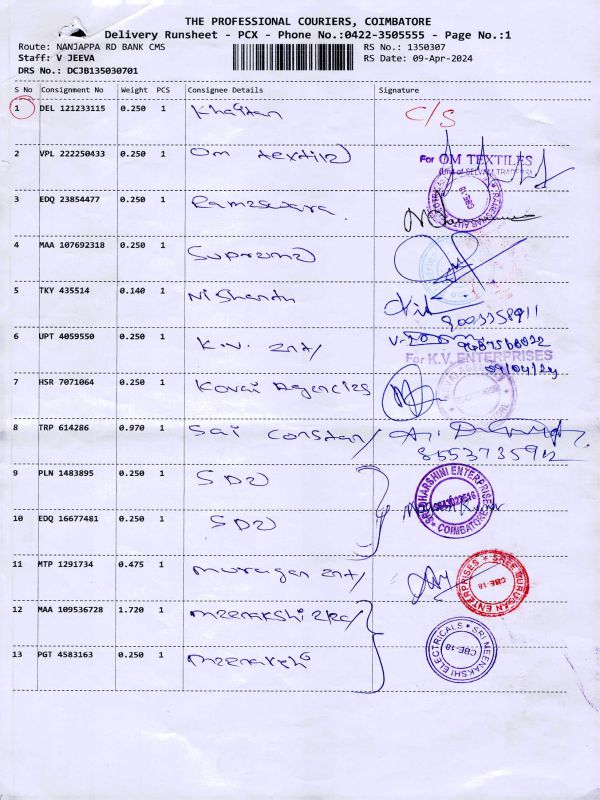 THE PROFESSIONAL COURIERS, COIMBATORE
Delivery Runsheet - PCX - Phone No.:0422-3505555 - Page No.:1
Route: NANJAPPA RD BANK CMS
RS No.: 1350307
Staff: V JEEVA
RS Date: 09-Apr-2024
DRS No.: DCJB135030701
S No Consignment No Weight PCS Consignee Details Signature
1 DEL 121233115 0.250 1 Khaitan C/S
2 VPL 222250433 0.250 1 Om textile
For OM TEXTILES
(Unit of SELVAM TRADERS)
3 EDQ 23854477 0.250 1 Rameswara
4 MAA 107692318 0.250 1 Supreme
5 TKY 435514 0.140 1 Nishanth
9003358911
6 UPT 4059550 0.250 1 K.V. Ent/
For K.V. ENTERPRISES
09/04/24
7 HSR 7071064 0.250 1 Kovai Agencies
8 TRP 614286 0.970 1 Sai Constan/
8553735912
9 PLN 1483895 0.250 1 SDE
SRI DHARSHINI ENTERPRISES
COIMBATORE
10 EDQ 16677481 0.250 1 SDE
11 MTP 1291734 0.475 1 Murugan Ent/
SREE MURUGAN ENTERPRISES
CBE-18
12 MAA 109536728 1.720 1 Meenakshi Elec/
SRI MEENAKSHI ELECTRICALS
CBE-18
13 PGT 4583163 0.250 1 Meenakshi